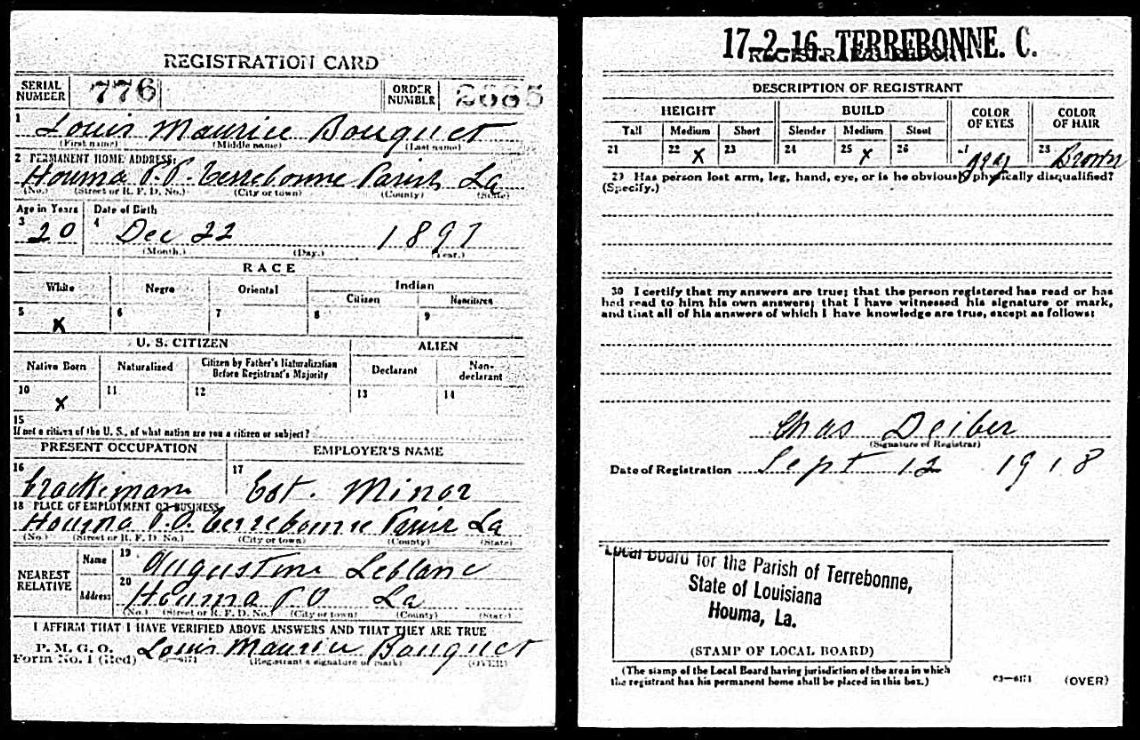 REGISTRATION CARD
SERIAL NUMBER 776 ORDER NUMBER
1 Louis Maurice Bouquet
(First name) (Middle name) (Last name)
2 PERMANENT HOME ADDRESS:
Houma P.O. Terrebonne Parish La
(No.) (Street or R. F. D. No.) (City or town) (County) (State)
Age in Years Date of Birth
3 20 4 Dec 22 1897
(Month.) (Day.) (Year.)
RACE
White Negro Oriental Indian
Citizen Noncitizen
5 X 6 7 8 9
U. S. CITIZEN ALIEN
Native Born Naturalized Citizen by Father's Naturalization Before Registrant's Majority Declarant Non-declarant
10 X 11 12 13 14
15
If not a citizen of the U. S., of what nation are you a citizen or subject?
PRESENT OCCUPATION EMPLOYER'S NAME
16 17
Est. Minor
18 PLACE OF EMPLOYMENT OR BUSINESS
Houma P.O. Terrebonne La
(No.) (Street or R. F. D. No.) (City or town) (County) (State)
NEAREST RELATIVE Name 19 Augustine Leblanc
Address 20 Houma P O La
(No.) (Street or R. F. D. No.) (City or town) (County) (State)
I AFFIRM THAT I HAVE VERIFIED ABOVE ANSWERS AND THAT THEY ARE TRUE
P. M. G. O.
Form No. 1 (Red) Louis Maurice Bouquet
(Registrant's signature or mark) (OVER)
17-2-16. TERREBONNE. C.
DESCRIPTION OF REGISTRANT
HEIGHT BUILD COLOR OF EYES COLOR OF HAIR
Tall Medium Short Slender Medium Stout
21 22 X 23 24 25 X 26 27 28 Brown
29 Has person lost arm, leg, hand, eye, or is he obviously physically disqualified?
(Specify.)
30 I certify that my answers are true; that the person registered has read or has
had read to him his own answers; that I have witnessed his signature or mark,
and that all of his answers of which I have knowledge are true, except as follows:
Chas Deiber
(Signature of Registrar)
Date of Registration Sept 12 1918
Local Board for the Parish of Terrebonne,
State of Louisiana
Houma, La.
(STAMP OF LOCAL BOARD)
(The stamp of the Local Board having jurisdiction of the area in which
the registrant has his permanent home shall be placed in this box.)
03—6171 (OVER)